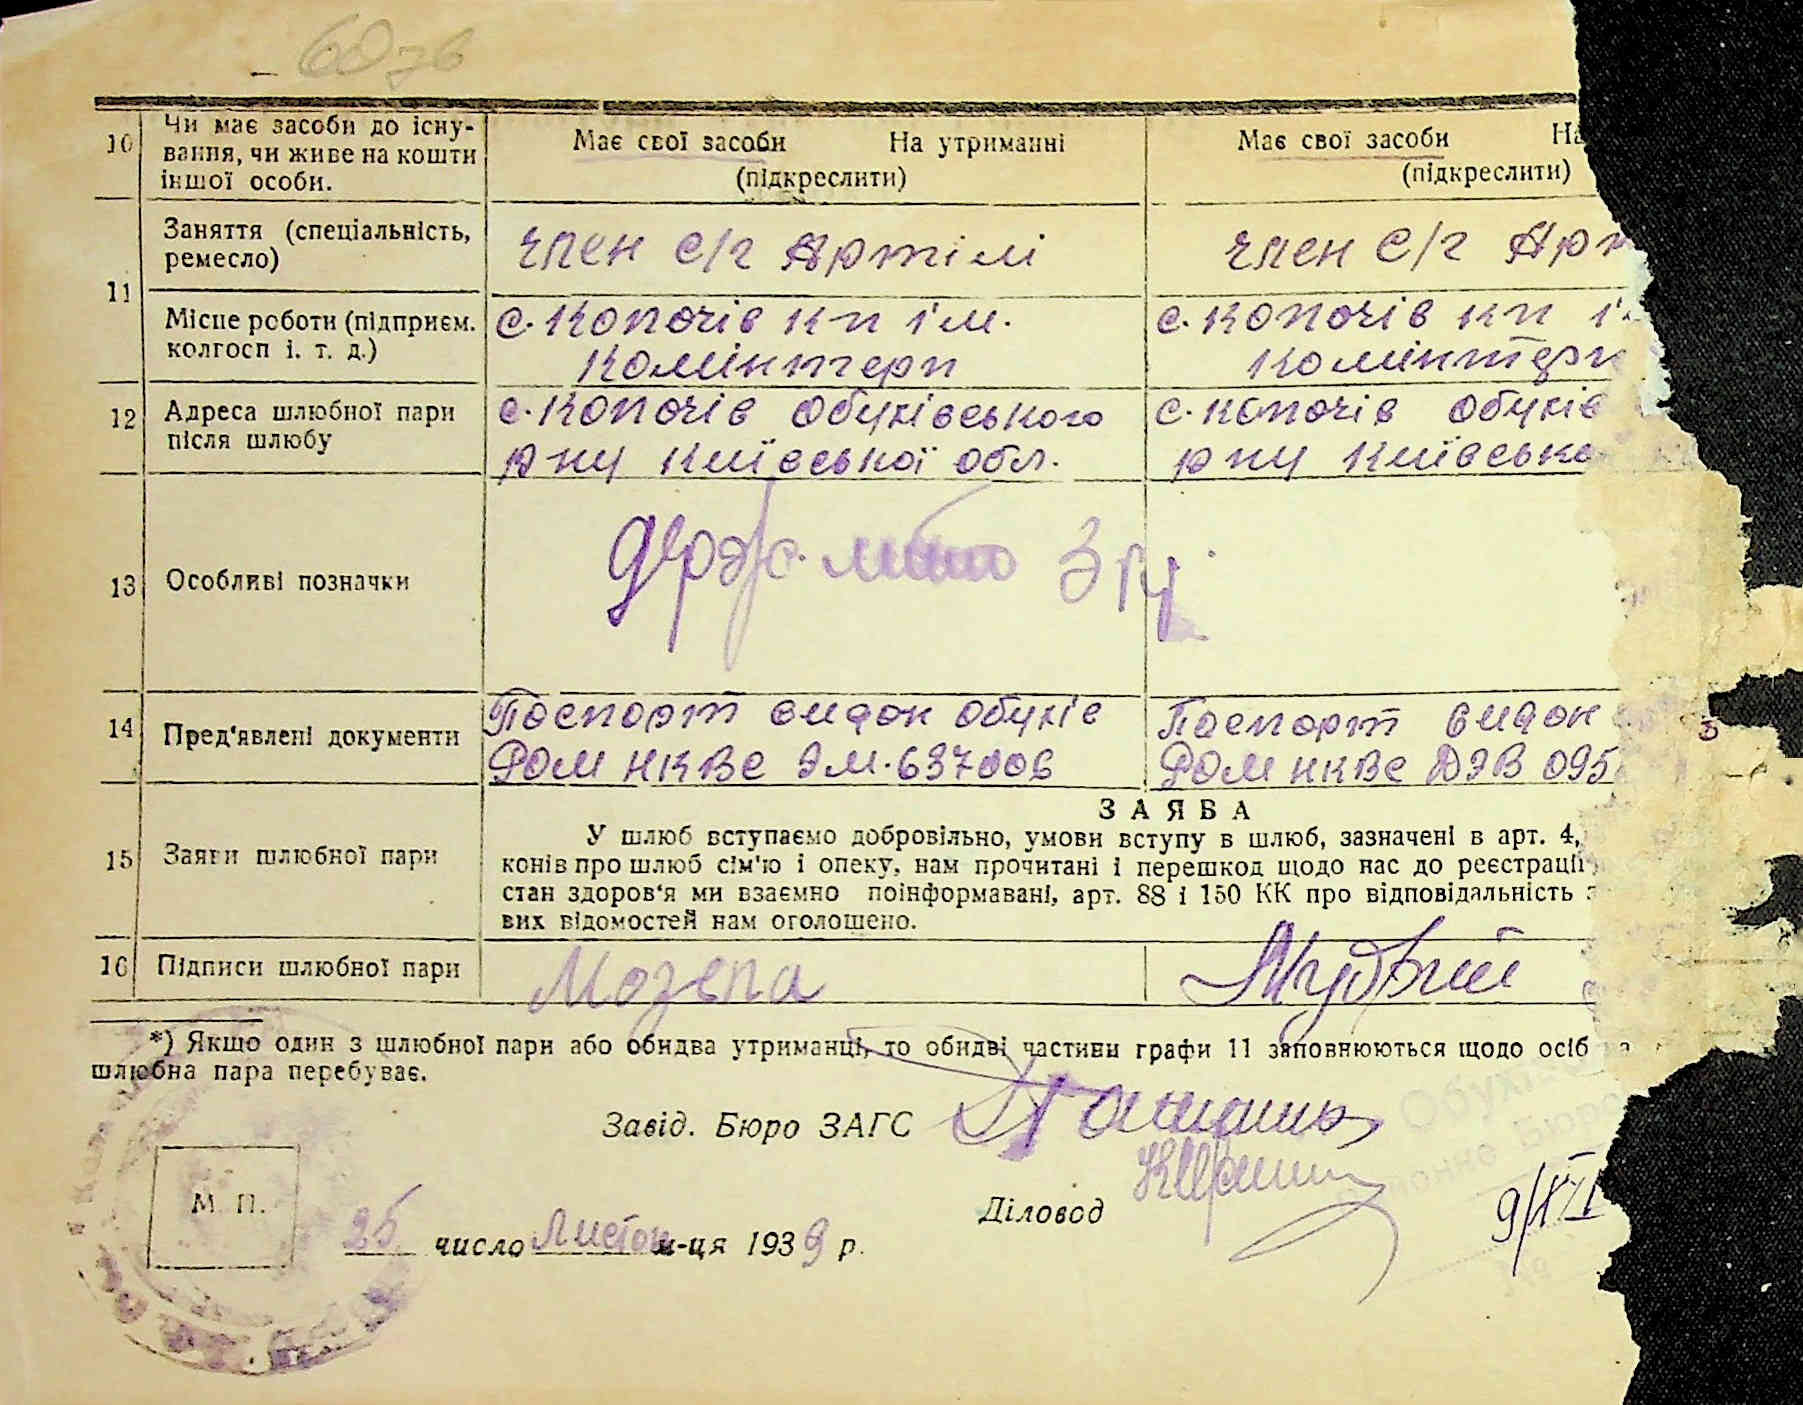 60 зв
10 Чи має засоби до існу-
вання, чи живе на кошти
іншої особи.
Має свої засоби На утриманні
(підкреслити)
Має свої засоби На
(підкреслити)
11 Заняття (спеціальність,
ремесло)
член с/г Артілі
член с/г Арт
Місце роботи (підприєм.
колгосп і. т. д.)
с. Копачів кп ім.
Комінтерн
с. Копачів кп ім
Комінтерн
12 Адреса шлюбної пари
після шлюбу
с. Копачів Обухівського
р-ну Київської обл.
с. Копачів Обухів
р-ну Київсько
13 Особливі позначки
Держ. мито 3 крб
14 Пред'явлені документи
Паспорт видан Обухів
РОМ НКВС ЭМ. 637006
Паспорт видан
РОМ НКВС ДЭВ 095
15 Заяви шлюбної пари
ЗАЯВА
У шлюб вступаємо добровільно, умови вступу в шлюб, зазначені в арт. 4,
конів про шлюб сім'ю і опеку, нам прочитані і перешкод щодо нас до реєстрації
стан здоров'я ми взаємно поінформавані, арт. 88 і 150 КК про відповідальність з
вих відомостей нам оголошено.
16 Підписи шлюбної пари
Мазепа
Мудрий
*) Якщо один з шлюбної пари або обидва утриманці, то обидві частини графи 11 заповнюються щодо осіб на
шлюбна пара перебуває.
Завід. Бюро ЗАГС
Діловод
М. П.
25 число Листоп м-ця 1939 р.
9/XII